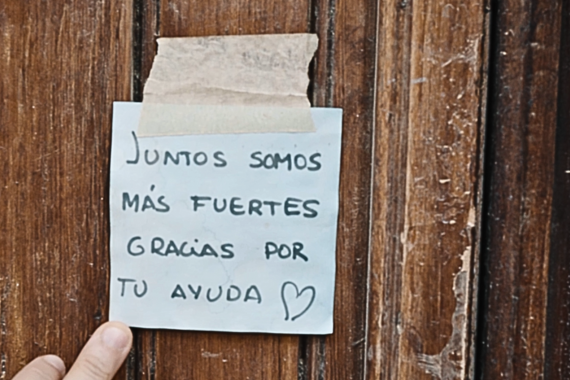 JUNTOS SOMOS
MÁS FUERTES
GRACiAS POR
TU AYUDA ♡